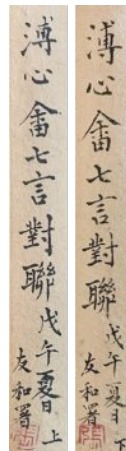 溥心畬七言對聯戊午夏日上
友和署
溥心畬七言對聯戊午夏日下
友和署